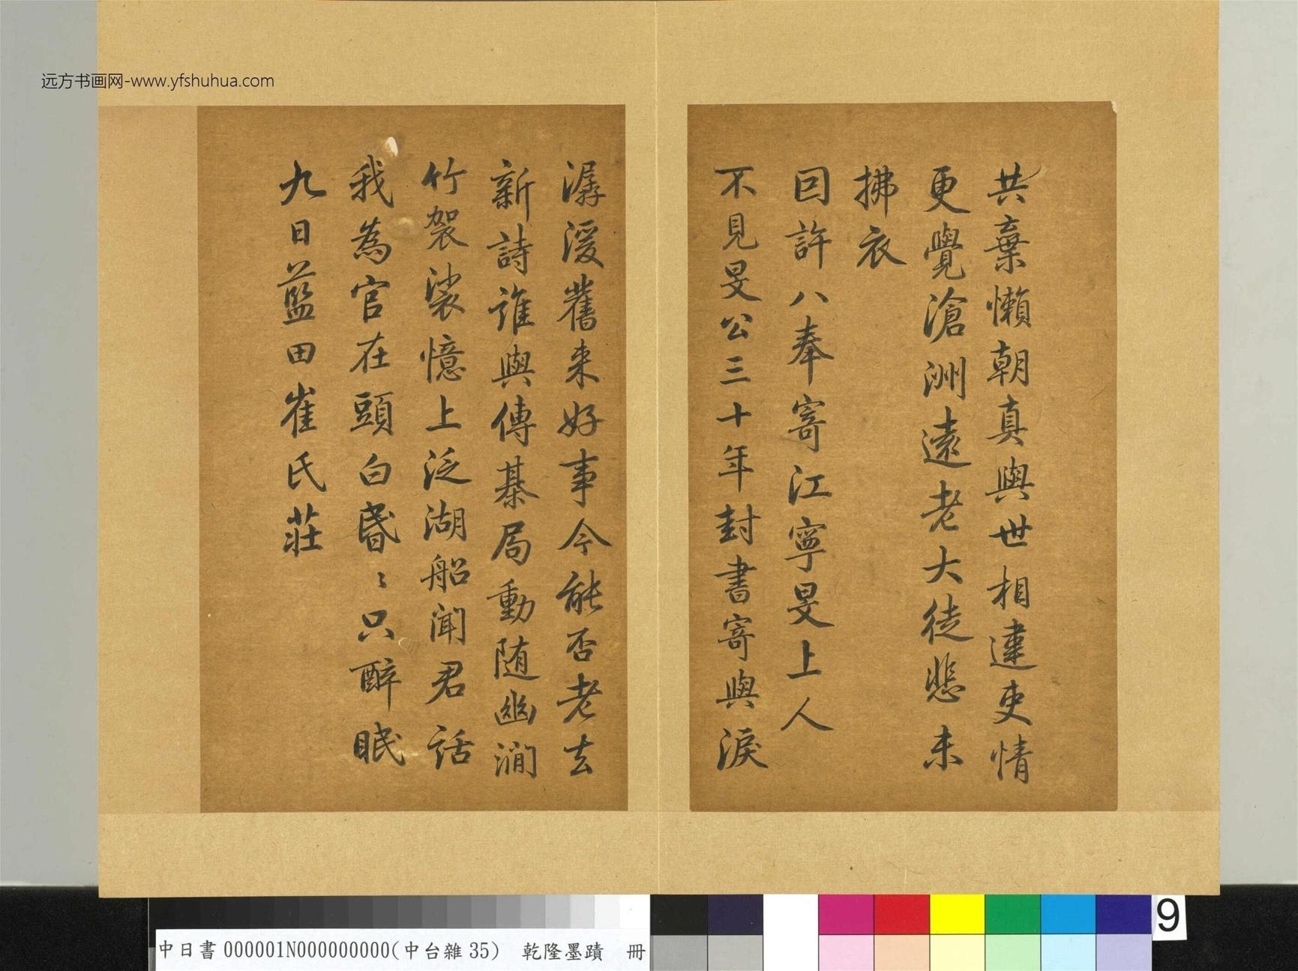 远方书画网-www.yfshuhua.com
共棄懶朝真與世相違吏情
更覺滄洲遠老大徒悲未
拂衣
因許八奉寄江寧旻上人
不見旻公三十年封書寄與淚
潺湲舊來好事今能否老去
新詩誰與傳棊局動随幽澗
竹袈裟憶上泛湖船聞君話
我為官在頭白昏〻只醉眠
九日藍田崔氏莊
中日書000001N000000000(中台雜35) 乾隆墨蹟 冊
9